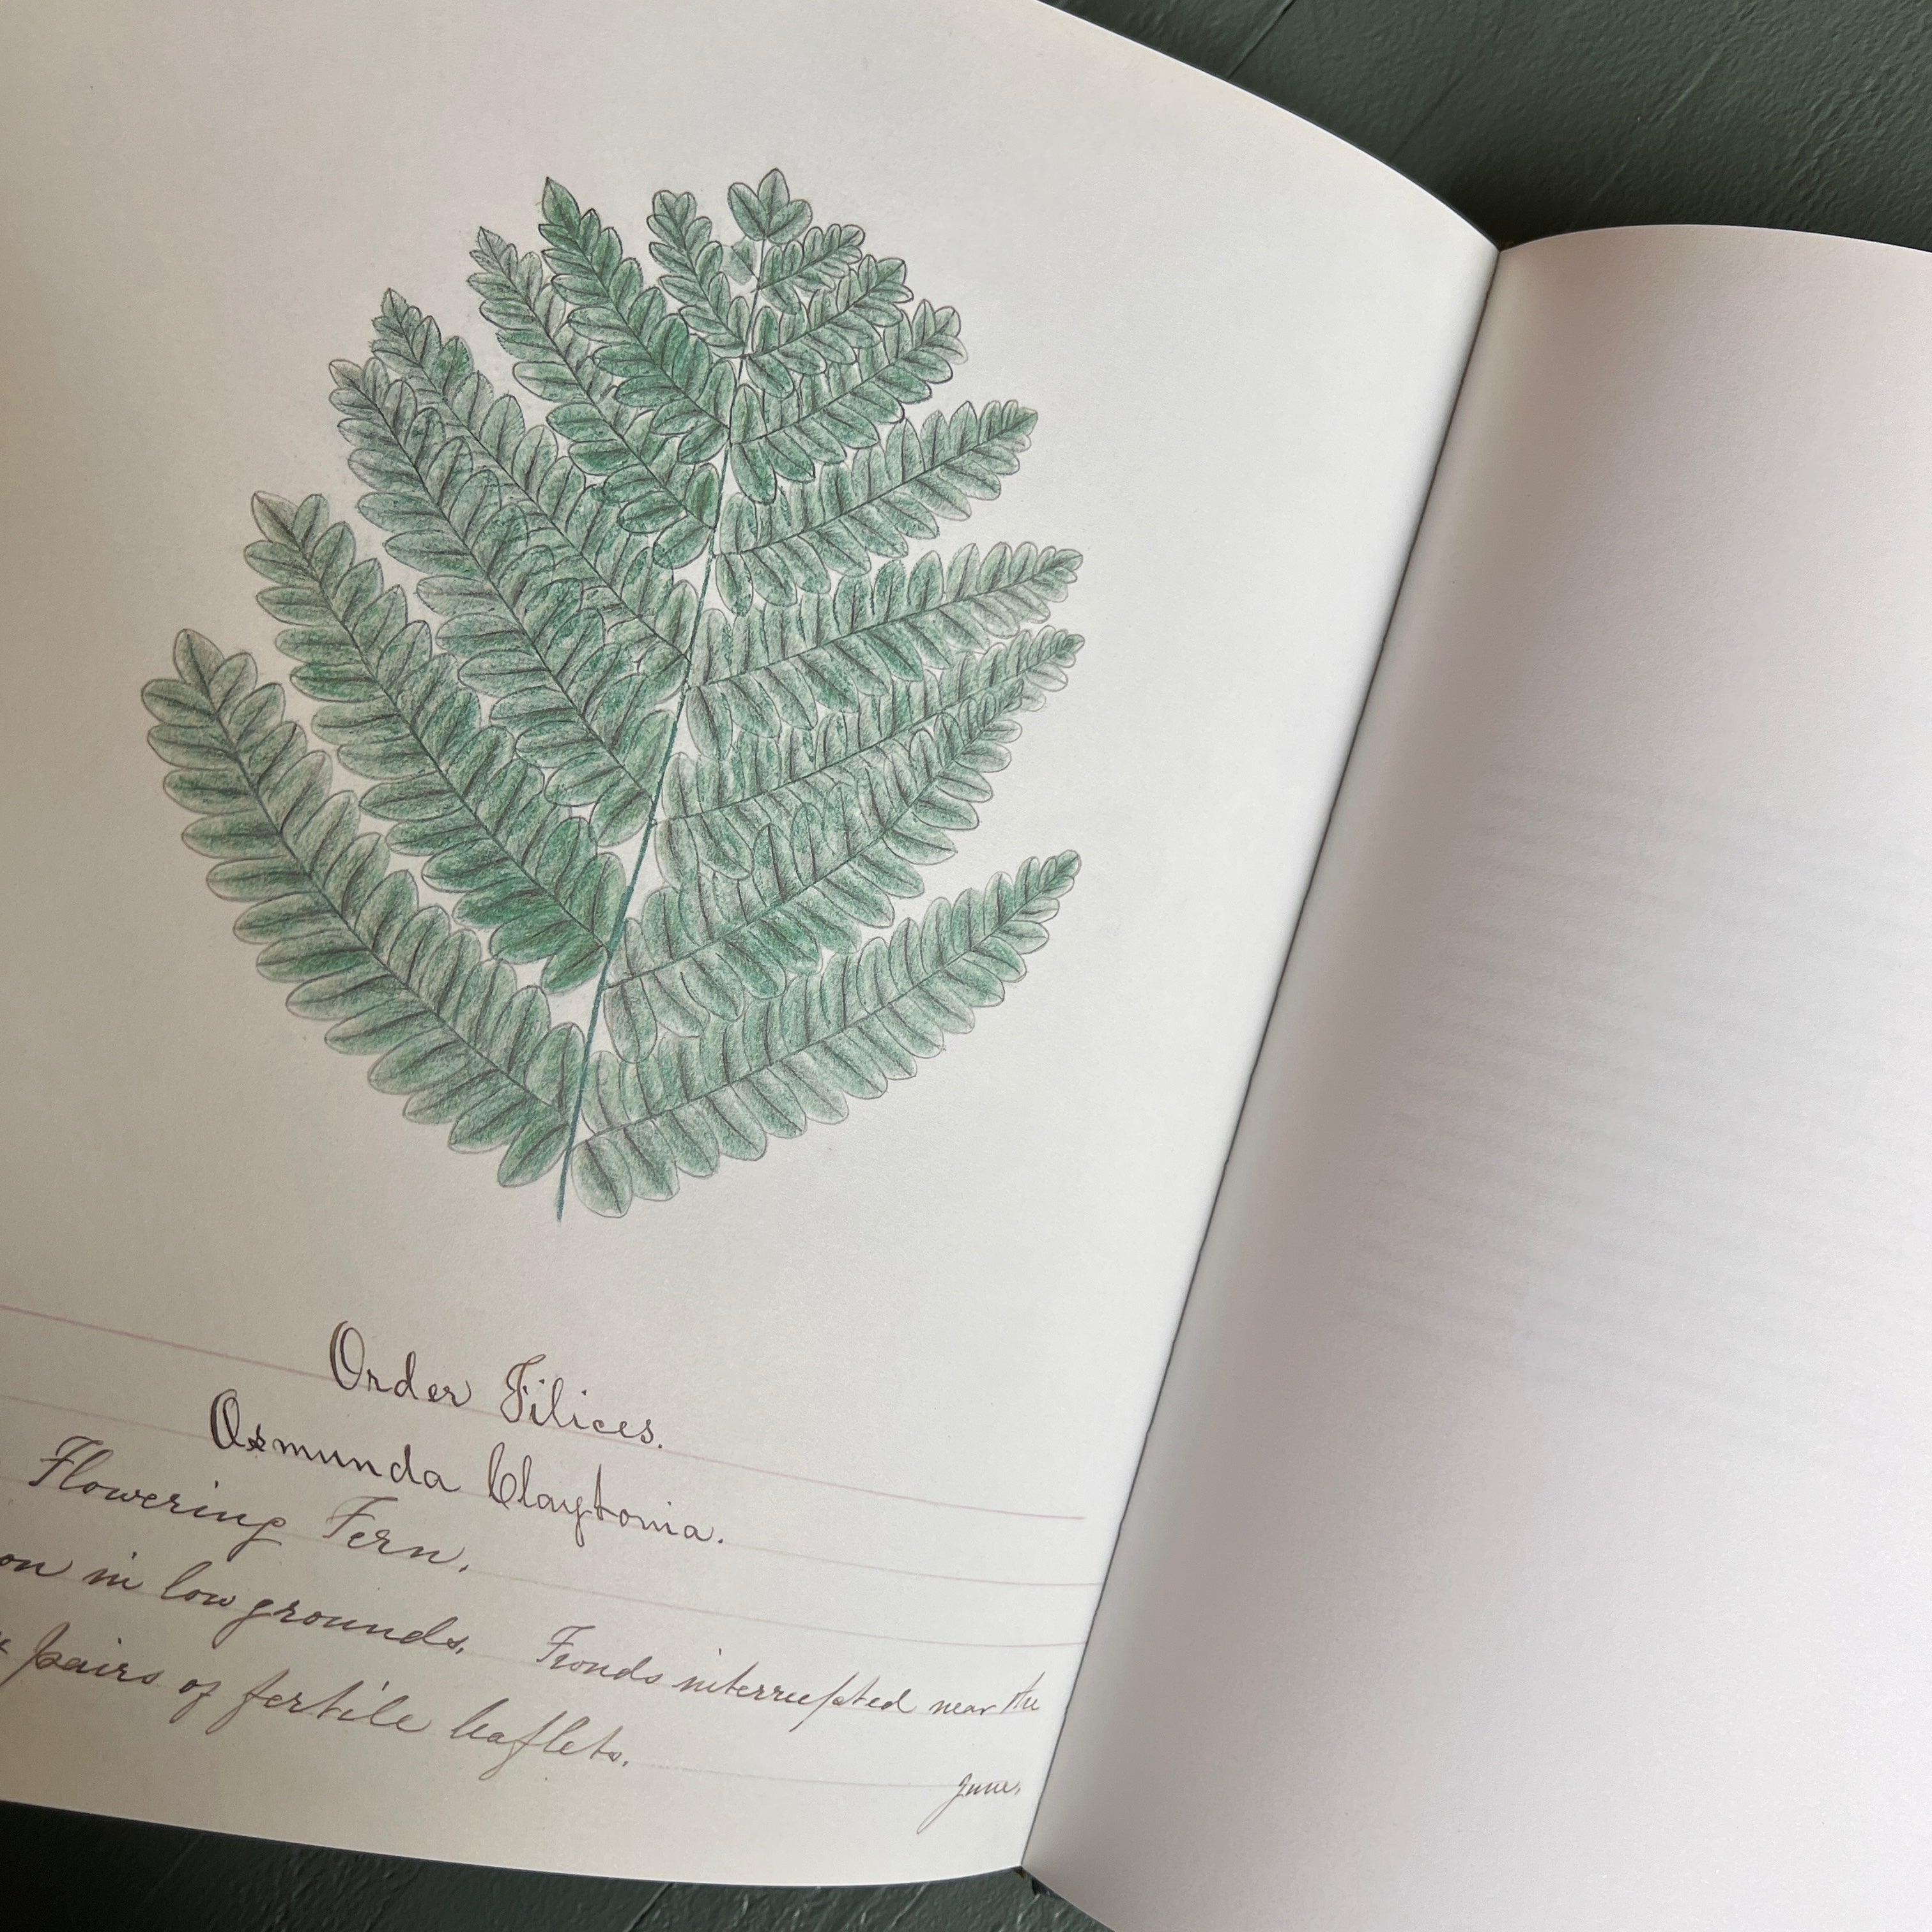 Order Filices.
Osmunda Claytonia.
Flowering Fern.
on in low grounds. Fronds interrupted near the
pairs of fertile leaflets.
June.